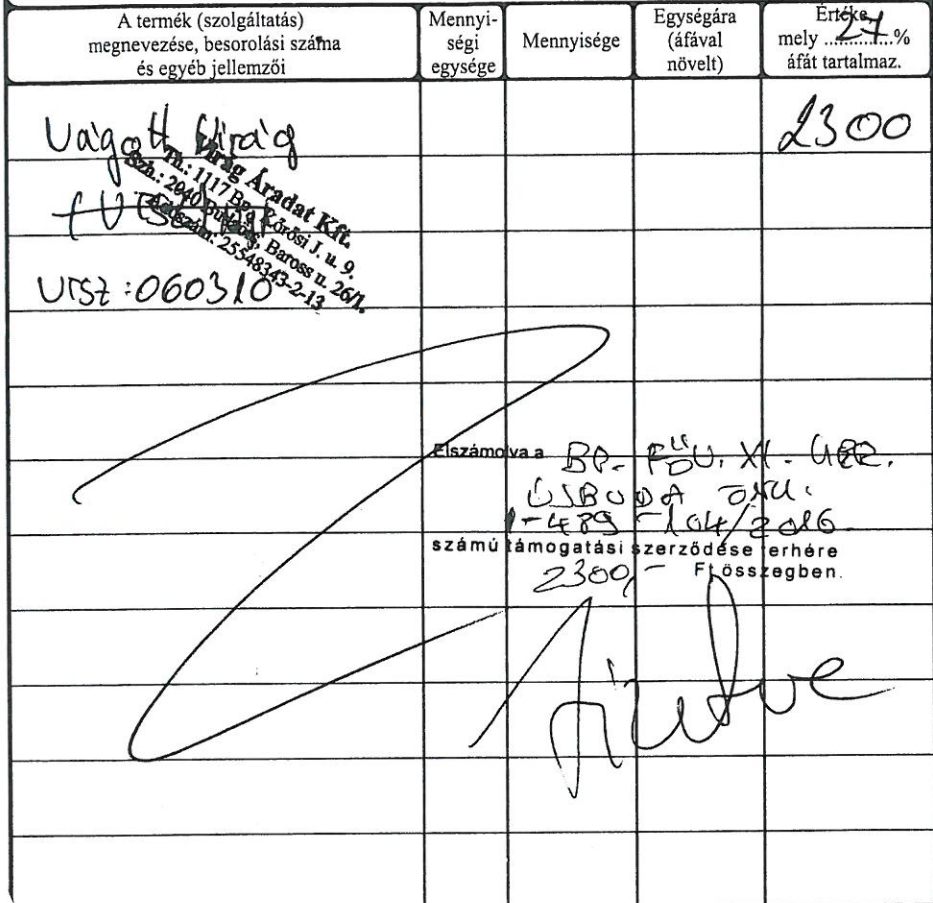 A termék (szolgáltatás)
megnevezése, besorolási száma
és egyéb jellemzői
Mennyi-
ségi
egysége
Mennyisége
Egységára
(áfával
növelt)
Értéke,
mely ....27....%
áfát tartalmaz.
Vágott virág
2300
Virág Áradat Kft.
Th.: 1117 Bp., Kőrösi J. u. 9.
Szh.: 2040 Budaörs, Baross u. 26/1.
Adószám: 25548343-2-13
VTSZ: 060310
Elszámolva a BP. FŐV. XI. KER.
ÚJBUDA ÖNK.
1-489-104/2016
számú támogatási szerződése terhére
2300,- Ft összegben.
Fizetve